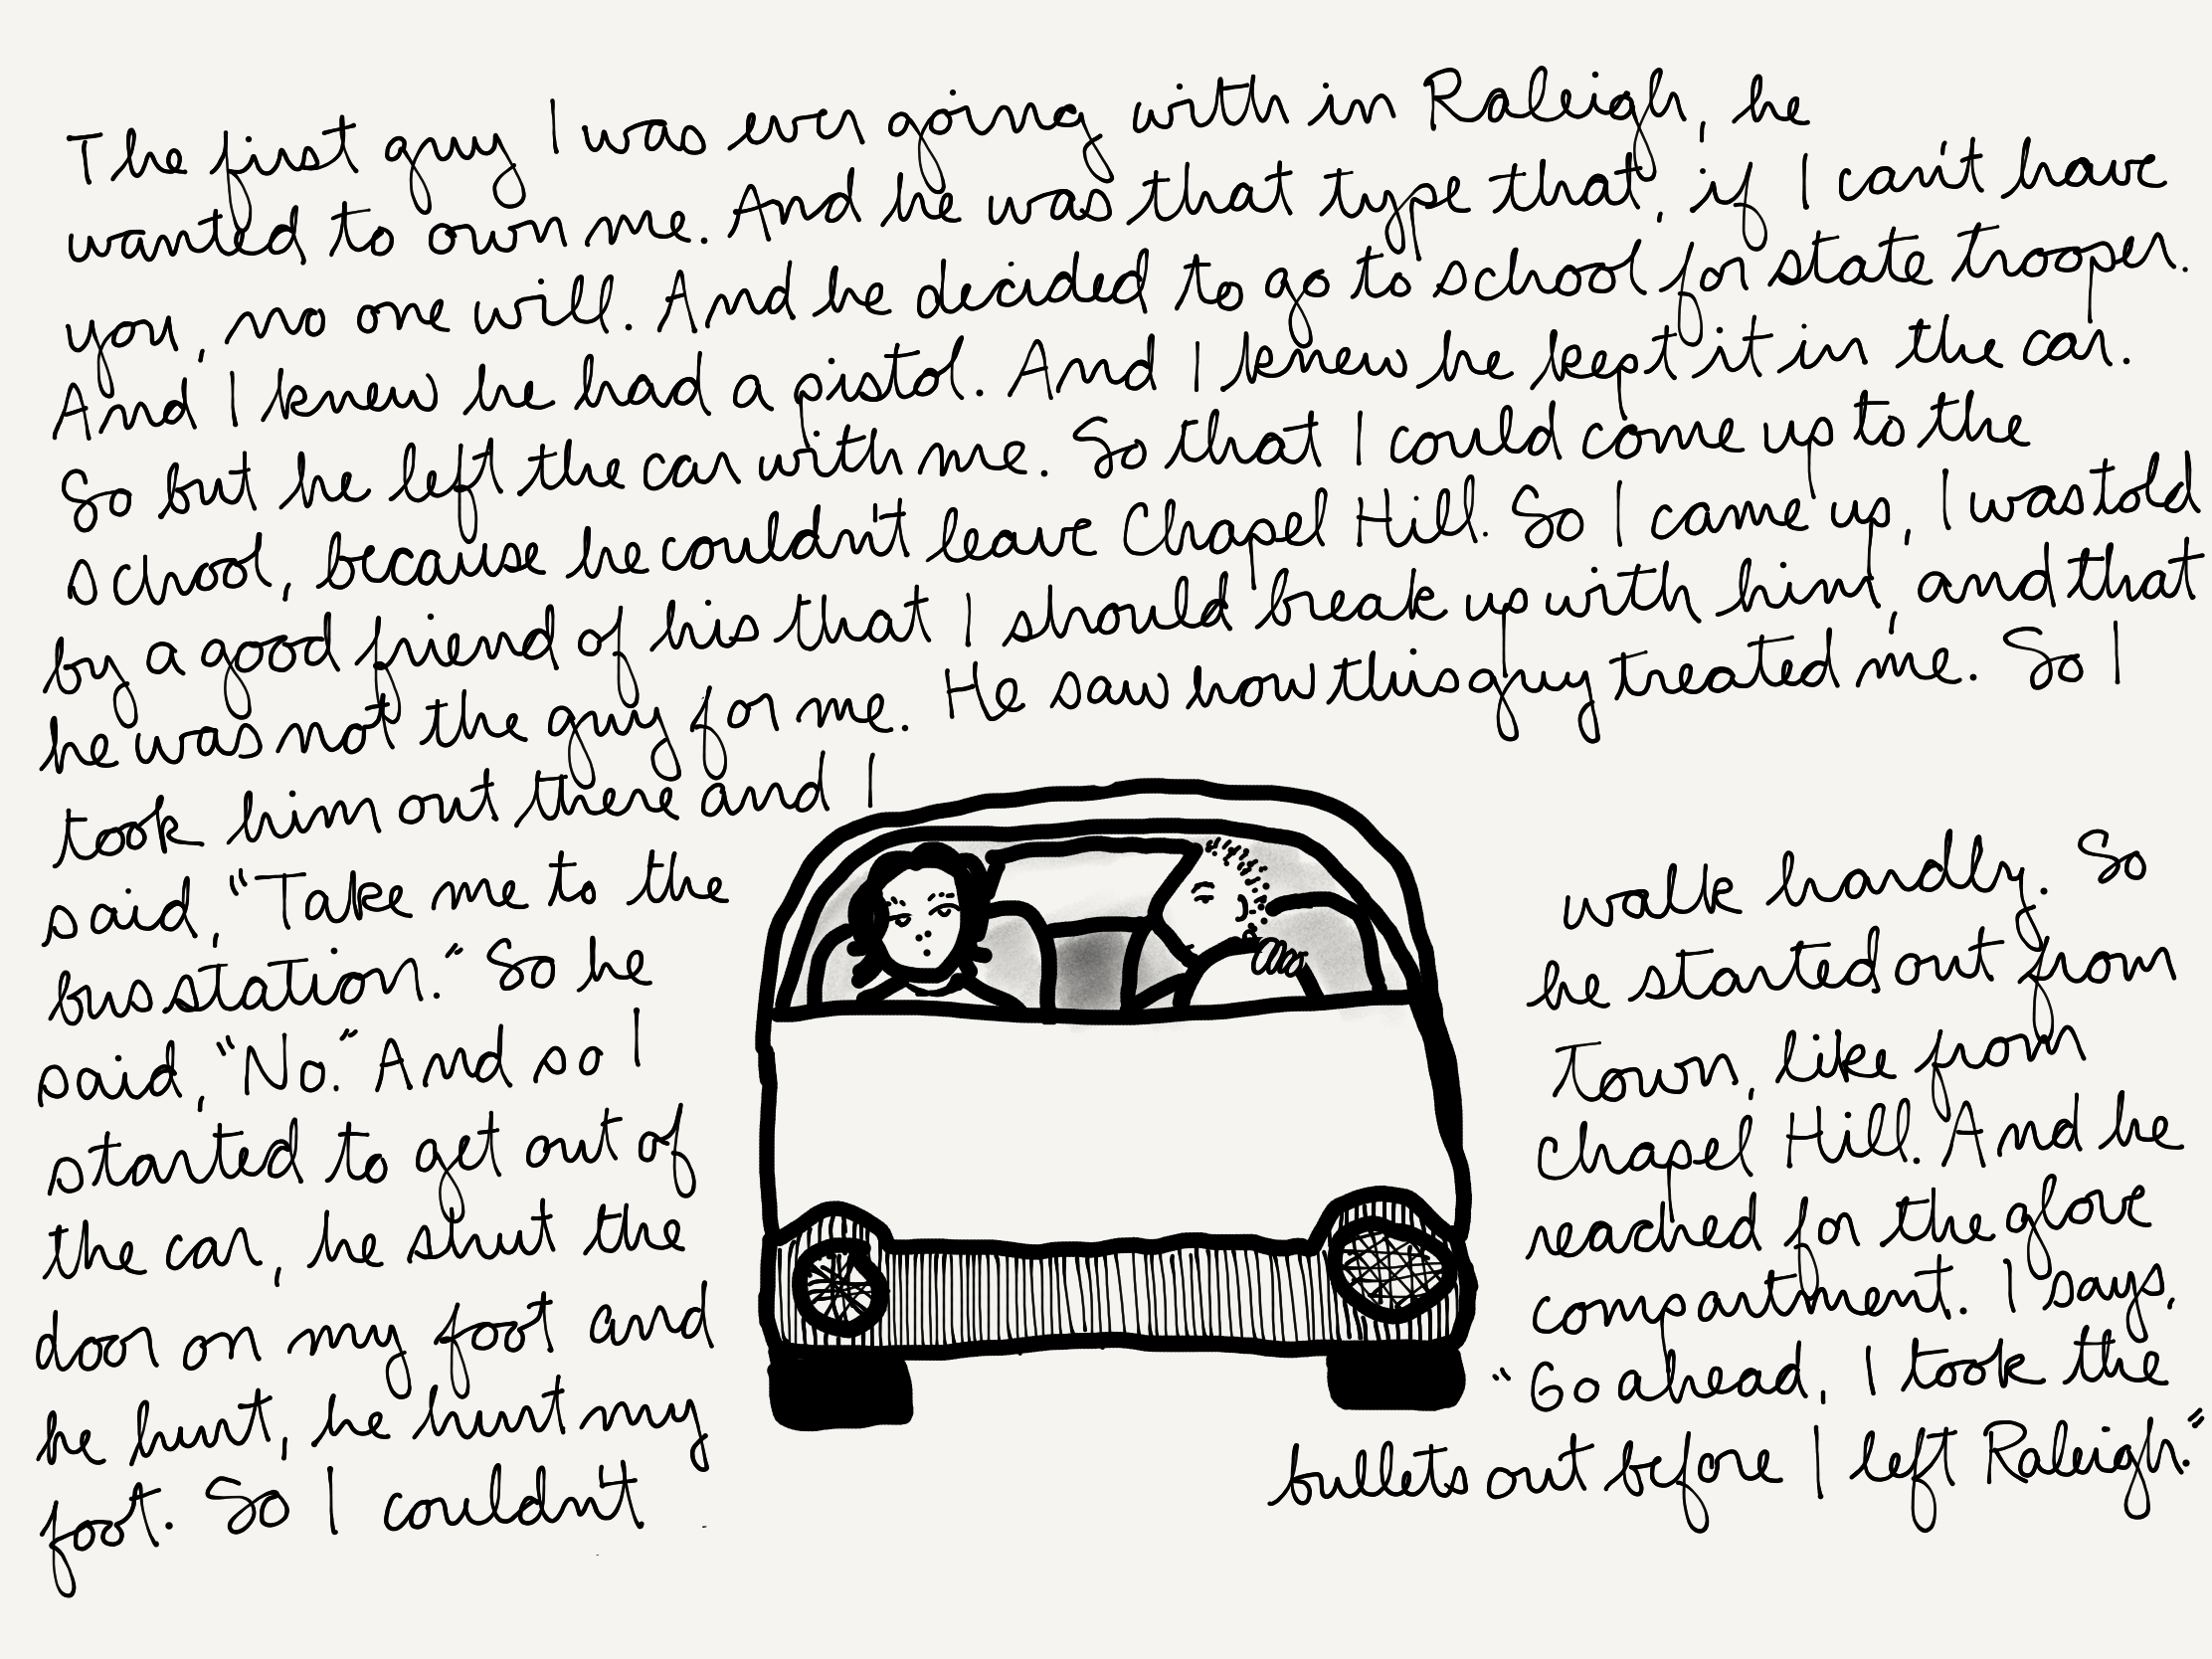 The first guy I was ever going with in Raleigh, he
wanted to own me. And he was that type that, if I can't have
you, no one will. And he decided to go to school for state trooper.
And I knew he had a pistol. And I knew he kept it in the car.
So but he left the car with me. So that I could come up to the
school, because he couldn't leave Chapel Hill. So I came up, I was told
by a good friend of his that I should break up with him, and that
he was not the guy for me. He saw how this guy treated me. So I
took him out there and I
said, "Take me to the
bus station." So he
said, "No." And so I
started to get out of
the car, he shut the
door on my foot and
he hurt, he hurt my
foot. So I couldn't
walk hardly. So
he started out from
Town, like from
Chapel Hill. And he
reached for the glove
compartment. I says,
"Go ahead, I took the
bullets out before I left Raleigh."